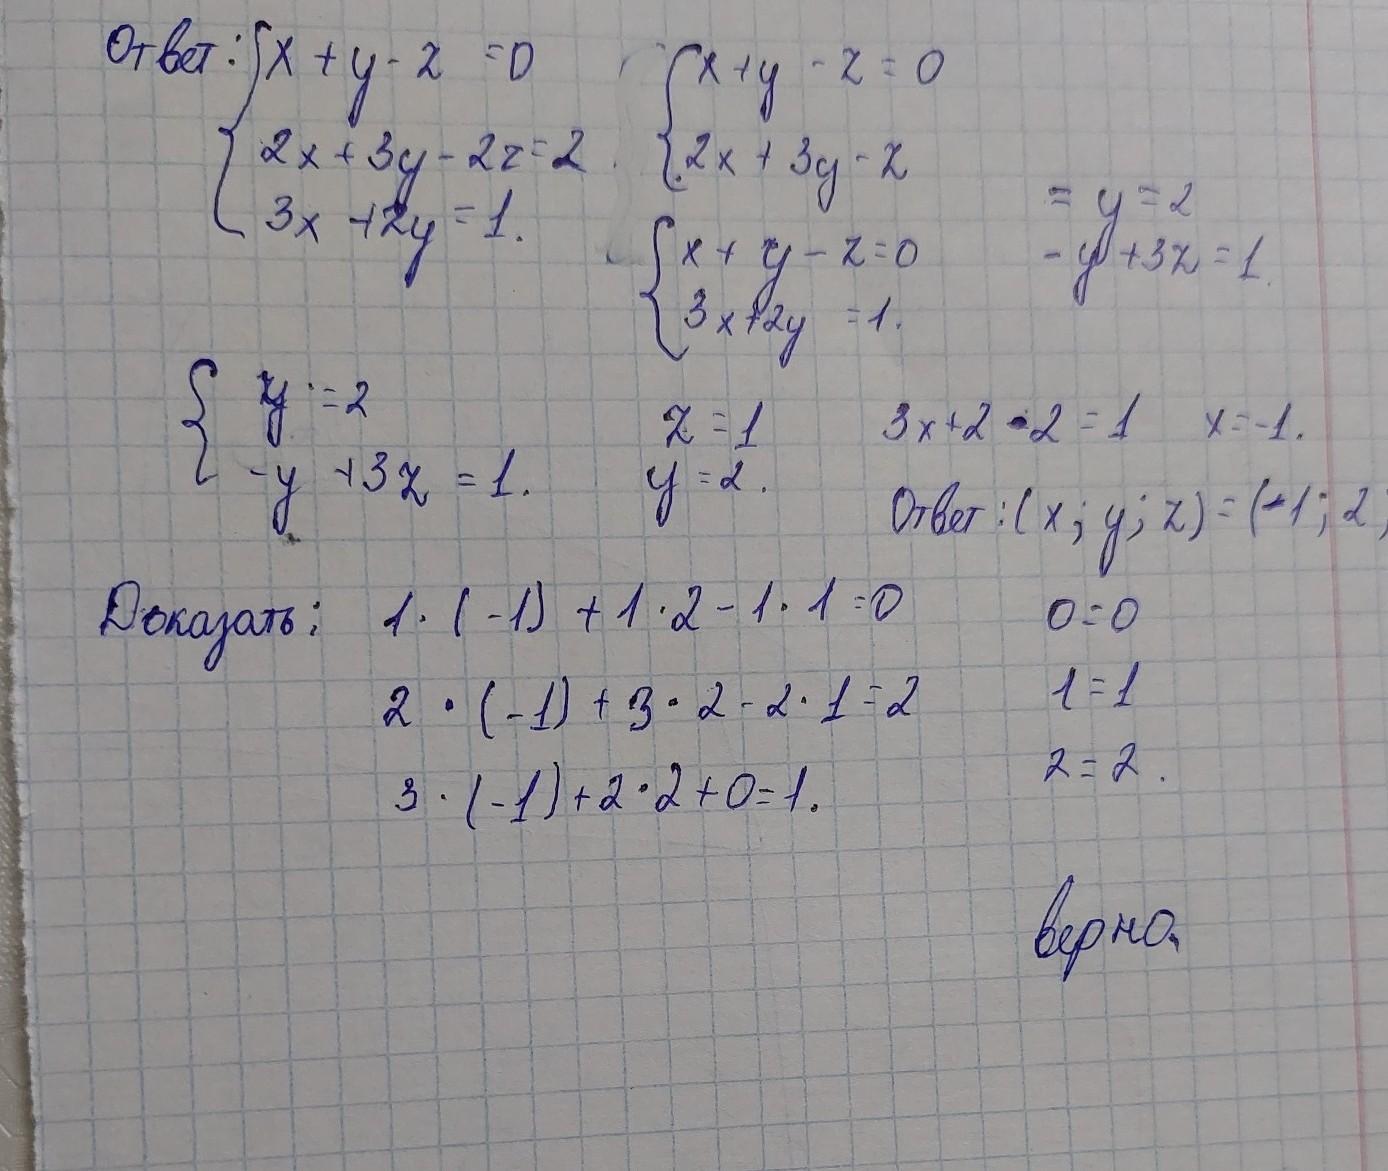 Ответ: { x + y - z = 0
2x + 3y - 2z = 2.
3x + 2y = 1.
{ x + y - z = 0
2x + 3y - z
= y = 2
{ x + y - z = 0
3x + 2y = 1.
- y + 3z = 1.
{ y = 2
-y + 3z = 1.
z = 1
y = 2.
3x + 2 · 2 = 1 x = -1.
Ответ: (x; y; z) = (-1; 2;
Доказать: 1 · (-1) + 1 · 2 - 1 · 1 = 0 0 = 0
2 · (-1) + 3 · 2 - 2 · 1 = 2 1 = 1
3 · (-1) + 2 · 2 + 0 = 1. 2 = 2.
верно.